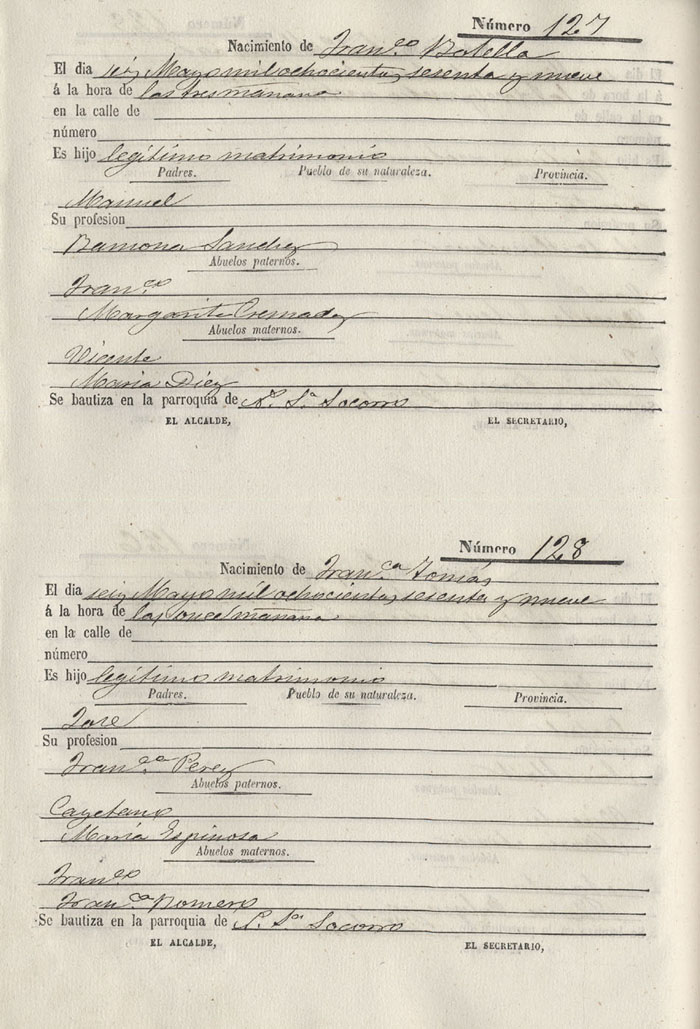 Número 127
Nacimiento de Fran.co Botella
El dia seis Mayo mil ochocientos sesenta y nueve
á la hora de las tres mañana
en la calle de
número
Es hijo legitimo matrimonio
Padres. Pueblo de su naturaleza. Provincia.
Manuel
Su profesion
Ramona Sanchez
Abuelos paternos.
Fran.co
Margarita Cremades
Abuelos maternos.
Vicente
Maria Diez
Se bautiza en la parroquia de N.a S.a Socorro
EL ALCALDE, EL SECRETARIO,
Número 128
Nacimiento de Fran.ca Tomás
El dia seis Mayo mil ochocientos sesenta y nueve
á la hora de las once mañana
en la calle de
número
Es hijo legitimo matrimonio
Padres. Pueblo de su naturaleza. Provincia.
José
Su profesion
Fran.ca Perez
Abuelos paternos.
Cayetano
Maria Espinosa
Abuelos maternos.
Fran.co
Fran.ca Romero
Se bautiza en la parroquia de S.a Socorro
EL ALCALDE, EL SECRETARIO,